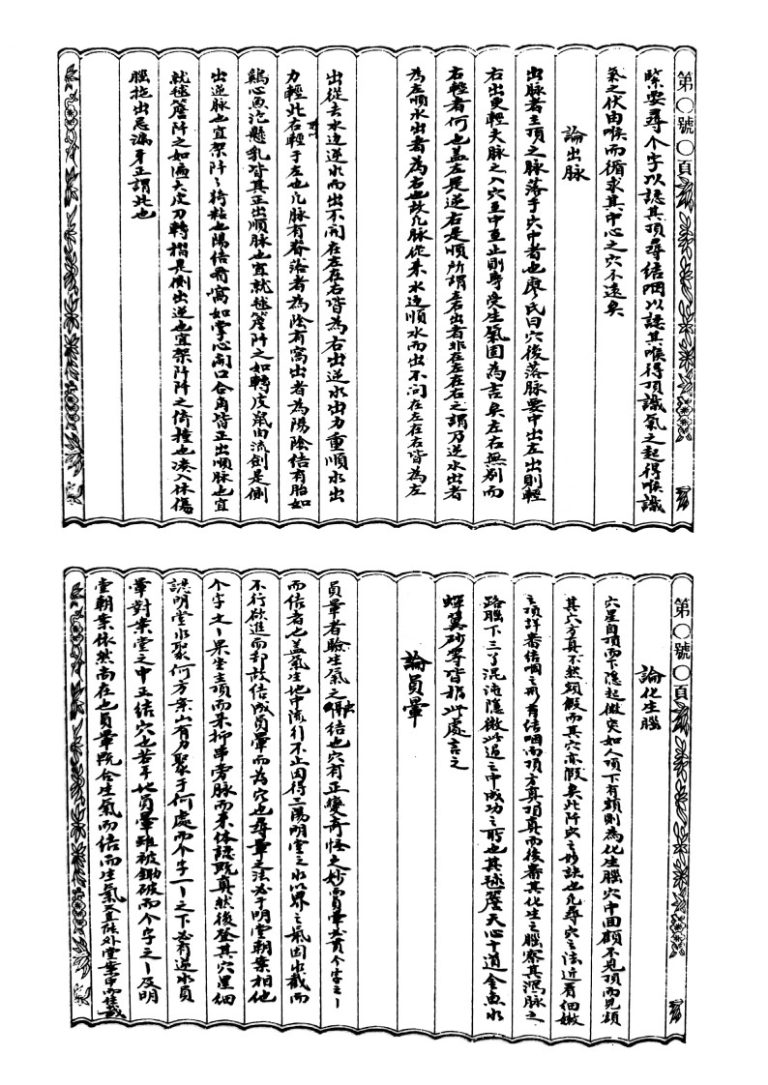 第〇號〇頁
緊要尋个字以認其頂尋结咽以認其喉得頂識氣之起得喉識
氣之伏由喉而循求其中心之穴不遠矣
論出脉
出脉者主頂之脉落于穴中者也廖氏曰穴後落脉要中出左出則輕
右出更輕夫脉之入穴至中至止則專受生氣固為吉矣左右無别而
右輕者何也盖左是逆右是順所謂右出者非在左在右之謂乃逆水出者
為左順水出者為右也故凢脉從来水邊順水而出不问在左在右皆為左
出從去水邊逆水而出不问在左在右皆為右出逆水出力重順水出
力輕此右輕于左也凢脉有脊落者為陰有窩出者為陽陰结有胎如
鷄心魚泡懸乳皆其正出順脉也宜就毬簷阡之如轉皮鼠肉流劍是側
出逆脉也宜架阡阡倚粘也陽结开窩如掌心开口合角皆正出順脉也宜
就毬簷阡之如邊大皮刀轉摺是側出逆也宜架阡阡之倚撞也凑入休傷
腦拖出忌漏牙正謂此也
第〇號〇頁
論化生腦
穴星自頂而下隐起微突如人頂下有額則為化生腦穴中囬顧不見頂而見額
其穴方真不然額假而其穴亦假矣此阡穴之妙訣也凢尋穴之法近看细嫩
之項詳審结咽之形有结咽而頂方真頂真而後審其化生之腦察其瀉脉之
路腦下三丫混沌隐微此造之中成功之所也其毬簷天心十道金魚水
蟬翼砂等皆拈此處言之
論員暈
員暈者驗生氣之结也穴有正變奇怪之妙而員暈
而结者也盖氣生地中流行不止因得三陽明堂之水以界之氣固水截而
不行欲進而却故结成員暈而為穴也尋暈之法必于明堂朝案相他
个字文丨果坐主頂而来抑串旁脉而来体認既真然後登其穴星细
認明堂水聚何方案山有力聚于何處而个字丨丨之下必有逆水員
暈對案堂之中正结穴也若平地員暈雖被鋤破而个字之丨及明
堂朝案依然尚在也員暈既合生氣而结而生氣又直